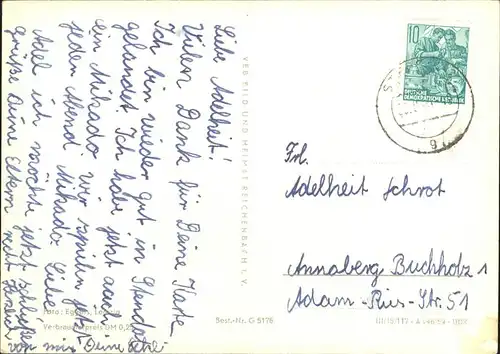 Liebe Adelheit!
Vielen Dank für Deine Karte.
Ich bin wieder gut in Stendal
gelandet. Ich habe jetzt auch
ein Mikado wir spielen jetzt
jeden Abend Mikado. Liebe
Adel ich möchte jetzt schließen
grüße deine Eltern recht herzlich
von mir Deine
VEB BILD UND HEIMAT REICHENBACH I. V.
Foto: Leipzig
Verbraucherpreis DM 0,25
Best.-Nr. G 5176
10
DEUTSCHE
DEMOKRATISCHE REPUBLIK
Frl.
Adelheit Schrot
Annaberg Buchholz 1
Adam-Ries-Str. 51
DDR